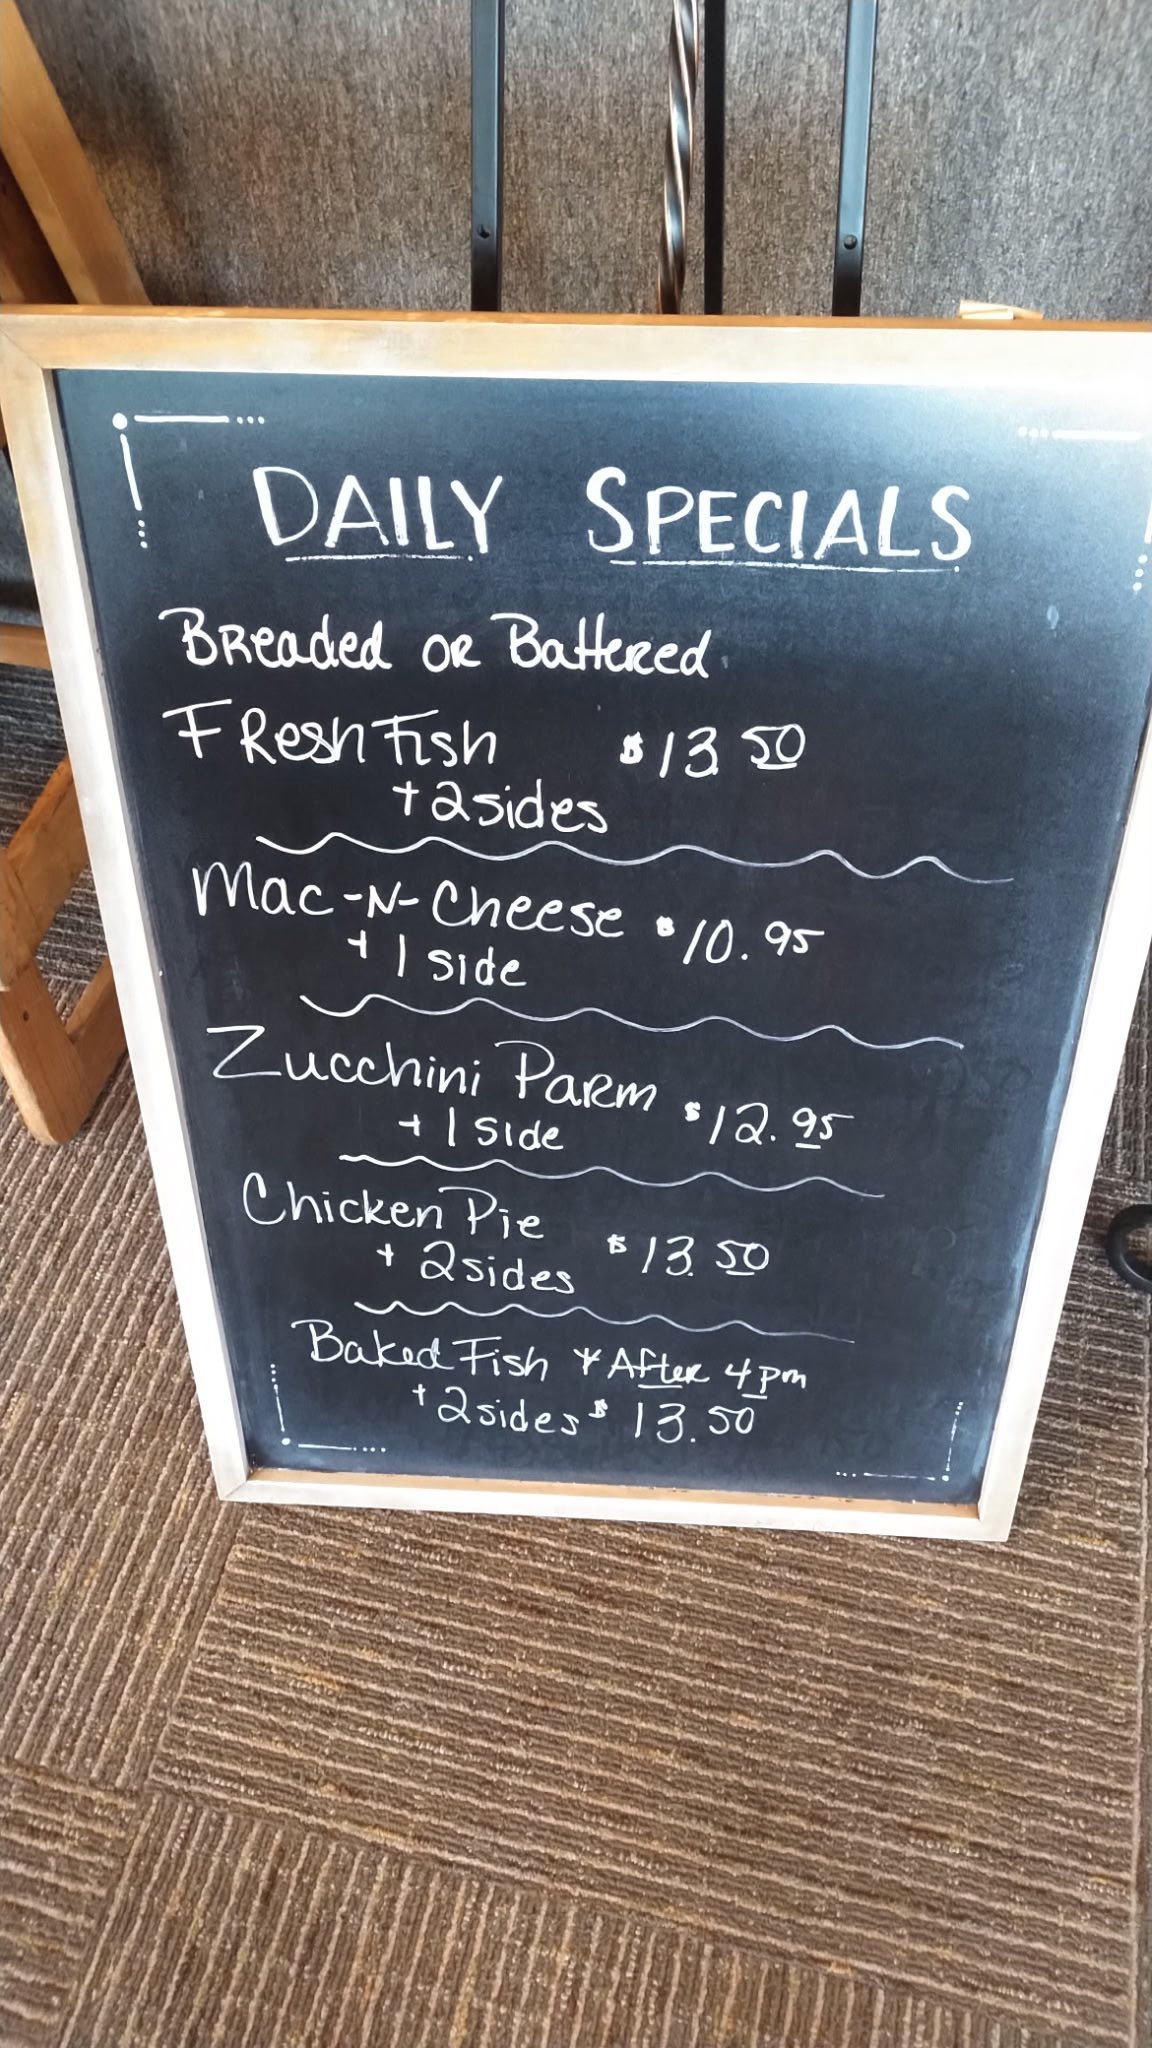 DAILY SPECIALS
Breaded or Battered
Fresh Fish $13.50
+2 sides
Mac-N-Cheese $10.95
+ 1 side
Zucchini Parm $12.95
+ 1 side
Chicken Pie $13.50
+ 2 sides
Baked Fish * After 4pm
+2 sides $13.50